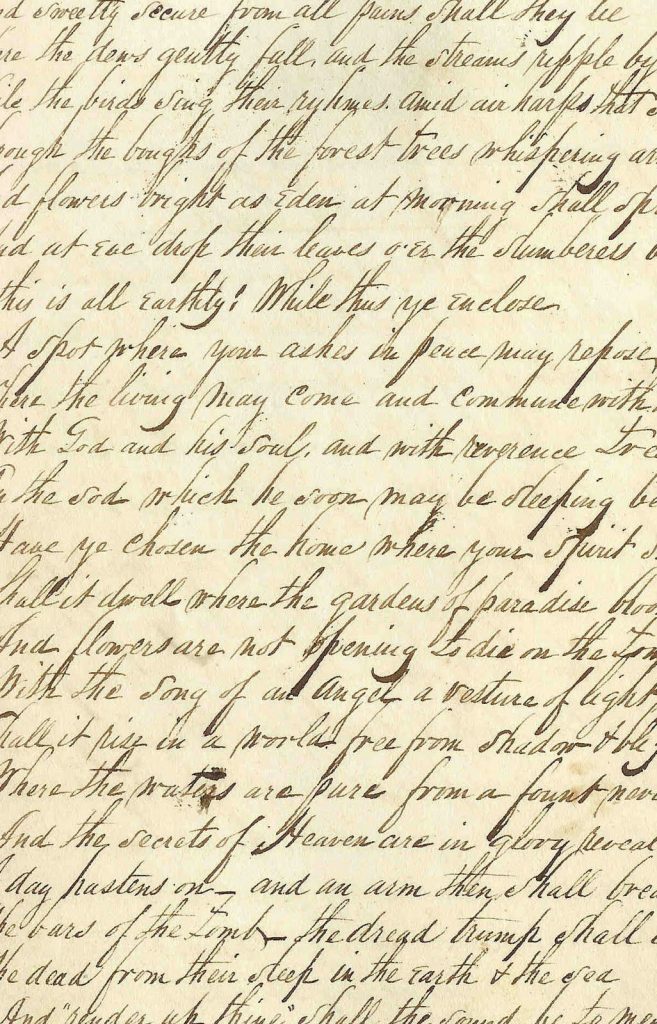 nd sweetly secure from all pains shall they lie
re the dews gently fall, and the streams ripple by
ile the birds sing their ryhmes, amid air harps that s
rough the boughs of the forest trees whispering ar
d flowers bright as Eden at morning shall spr
nd at eve drop their leaves o'er the slumberers b
this is all earthly! While thus ye enclose
A spot where your ashes in peace may repose,
here the living may come and commune with
With God and his soul, and with reverence tre
n the sod which he soon may be sleeping be
Have ye chosen the home where your spirit s
Shall it dwell where the gardens of paradise bloo
And flowers are not opening to die on the tom
With the song of an angel a vesture of light
hall it rise in a world free from shadow & bli
Where the waters are pure from a fount neve
And the secrets of Heaven are in glory reveal
A day hastens on – and an arm then shall brea
he bars of the tomb – the dread trump shall
he dead from their sleep in the earth & the sea
And "render up thine" shall the sound be to me